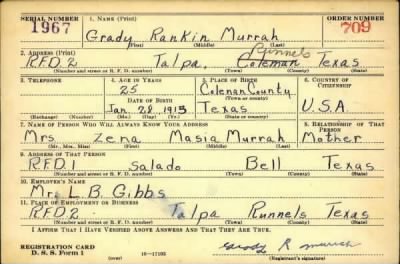 SERIAL NUMBER 1. NAME (Print) ORDER NUMBER
1967 Grady Rankin Murrah 709
(First) (Middle) (Last)
2. ADDRESS (Print) Runnels
R.F.D. 2 Talpa, Coleman Texas
(Number and street or R. F. D. number) (Town) (County) (State)
3. TELEPHONE 4. AGE IN YEARS 5. PLACE OF BIRTH 6. COUNTRY OF CITIZENSHIP
25 Coleman County
(Town or county)
DATE OF BIRTH
Jan. 28, 1915 Texas U.S.A.
(Exchange) (Number) (Mo.) (Day) (Yr.) (State or country)
7. NAME OF PERSON WHO WILL ALWAYS KNOW YOUR ADDRESS 8. RELATIONSHIP OF THAT PERSON
Mrs. Zena Masia Murrah Mother
(Mr., Mrs., Miss) (First) (Middle) (Last)
9. ADDRESS OF THAT PERSON
R.F.D. 1 Salado Bell Texas
(Number and street or R. F. D. number) (Town) (County) (State)
10. EMPLOYER'S NAME
Mr. L. B. Gibbs
11. PLACE OF EMPLOYMENT OR BUSINESS
R.F.D. 2 Talpa Runnels Texas
(Number and street or R. F. D. number) (Town) (County) (State)
I AFFIRM THAT I HAVE VERIFIED ABOVE ANSWERS AND THAT THEY ARE TRUE.
REGISTRATION CARD
D. S. S. Form 1 16-17105 Grady R Murrah
(Registrant's signature)